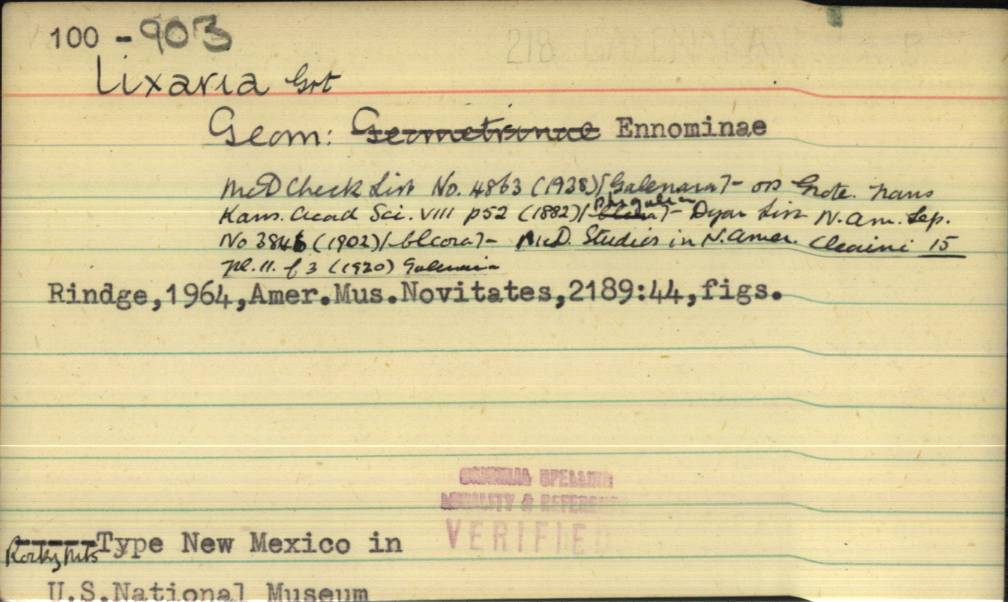 100 - 903
218 GALENARA
Lixaria Grt
Geom: Geometrinae Ennominae
McD Check List No. 4863 (1938) [Galenara] - os Grote. Trans
Kans. Acad Sci. VIII p52 (1882) [Phigalia] - Dyar List N. Am. Lep.
No 3846 (1902) [ ] - McD. Studies in N. Amer. Cleorini 15
pl. 11. f 3 (1920) Galenaria
Rindge,1964,Amer.Mus.Novitates,2189:44,figs.
ORIGINAL SPELLING
LOCALITY & REFERENCE
VERIFIED
Rocky Mts Type New Mexico in
U.S.National Museum